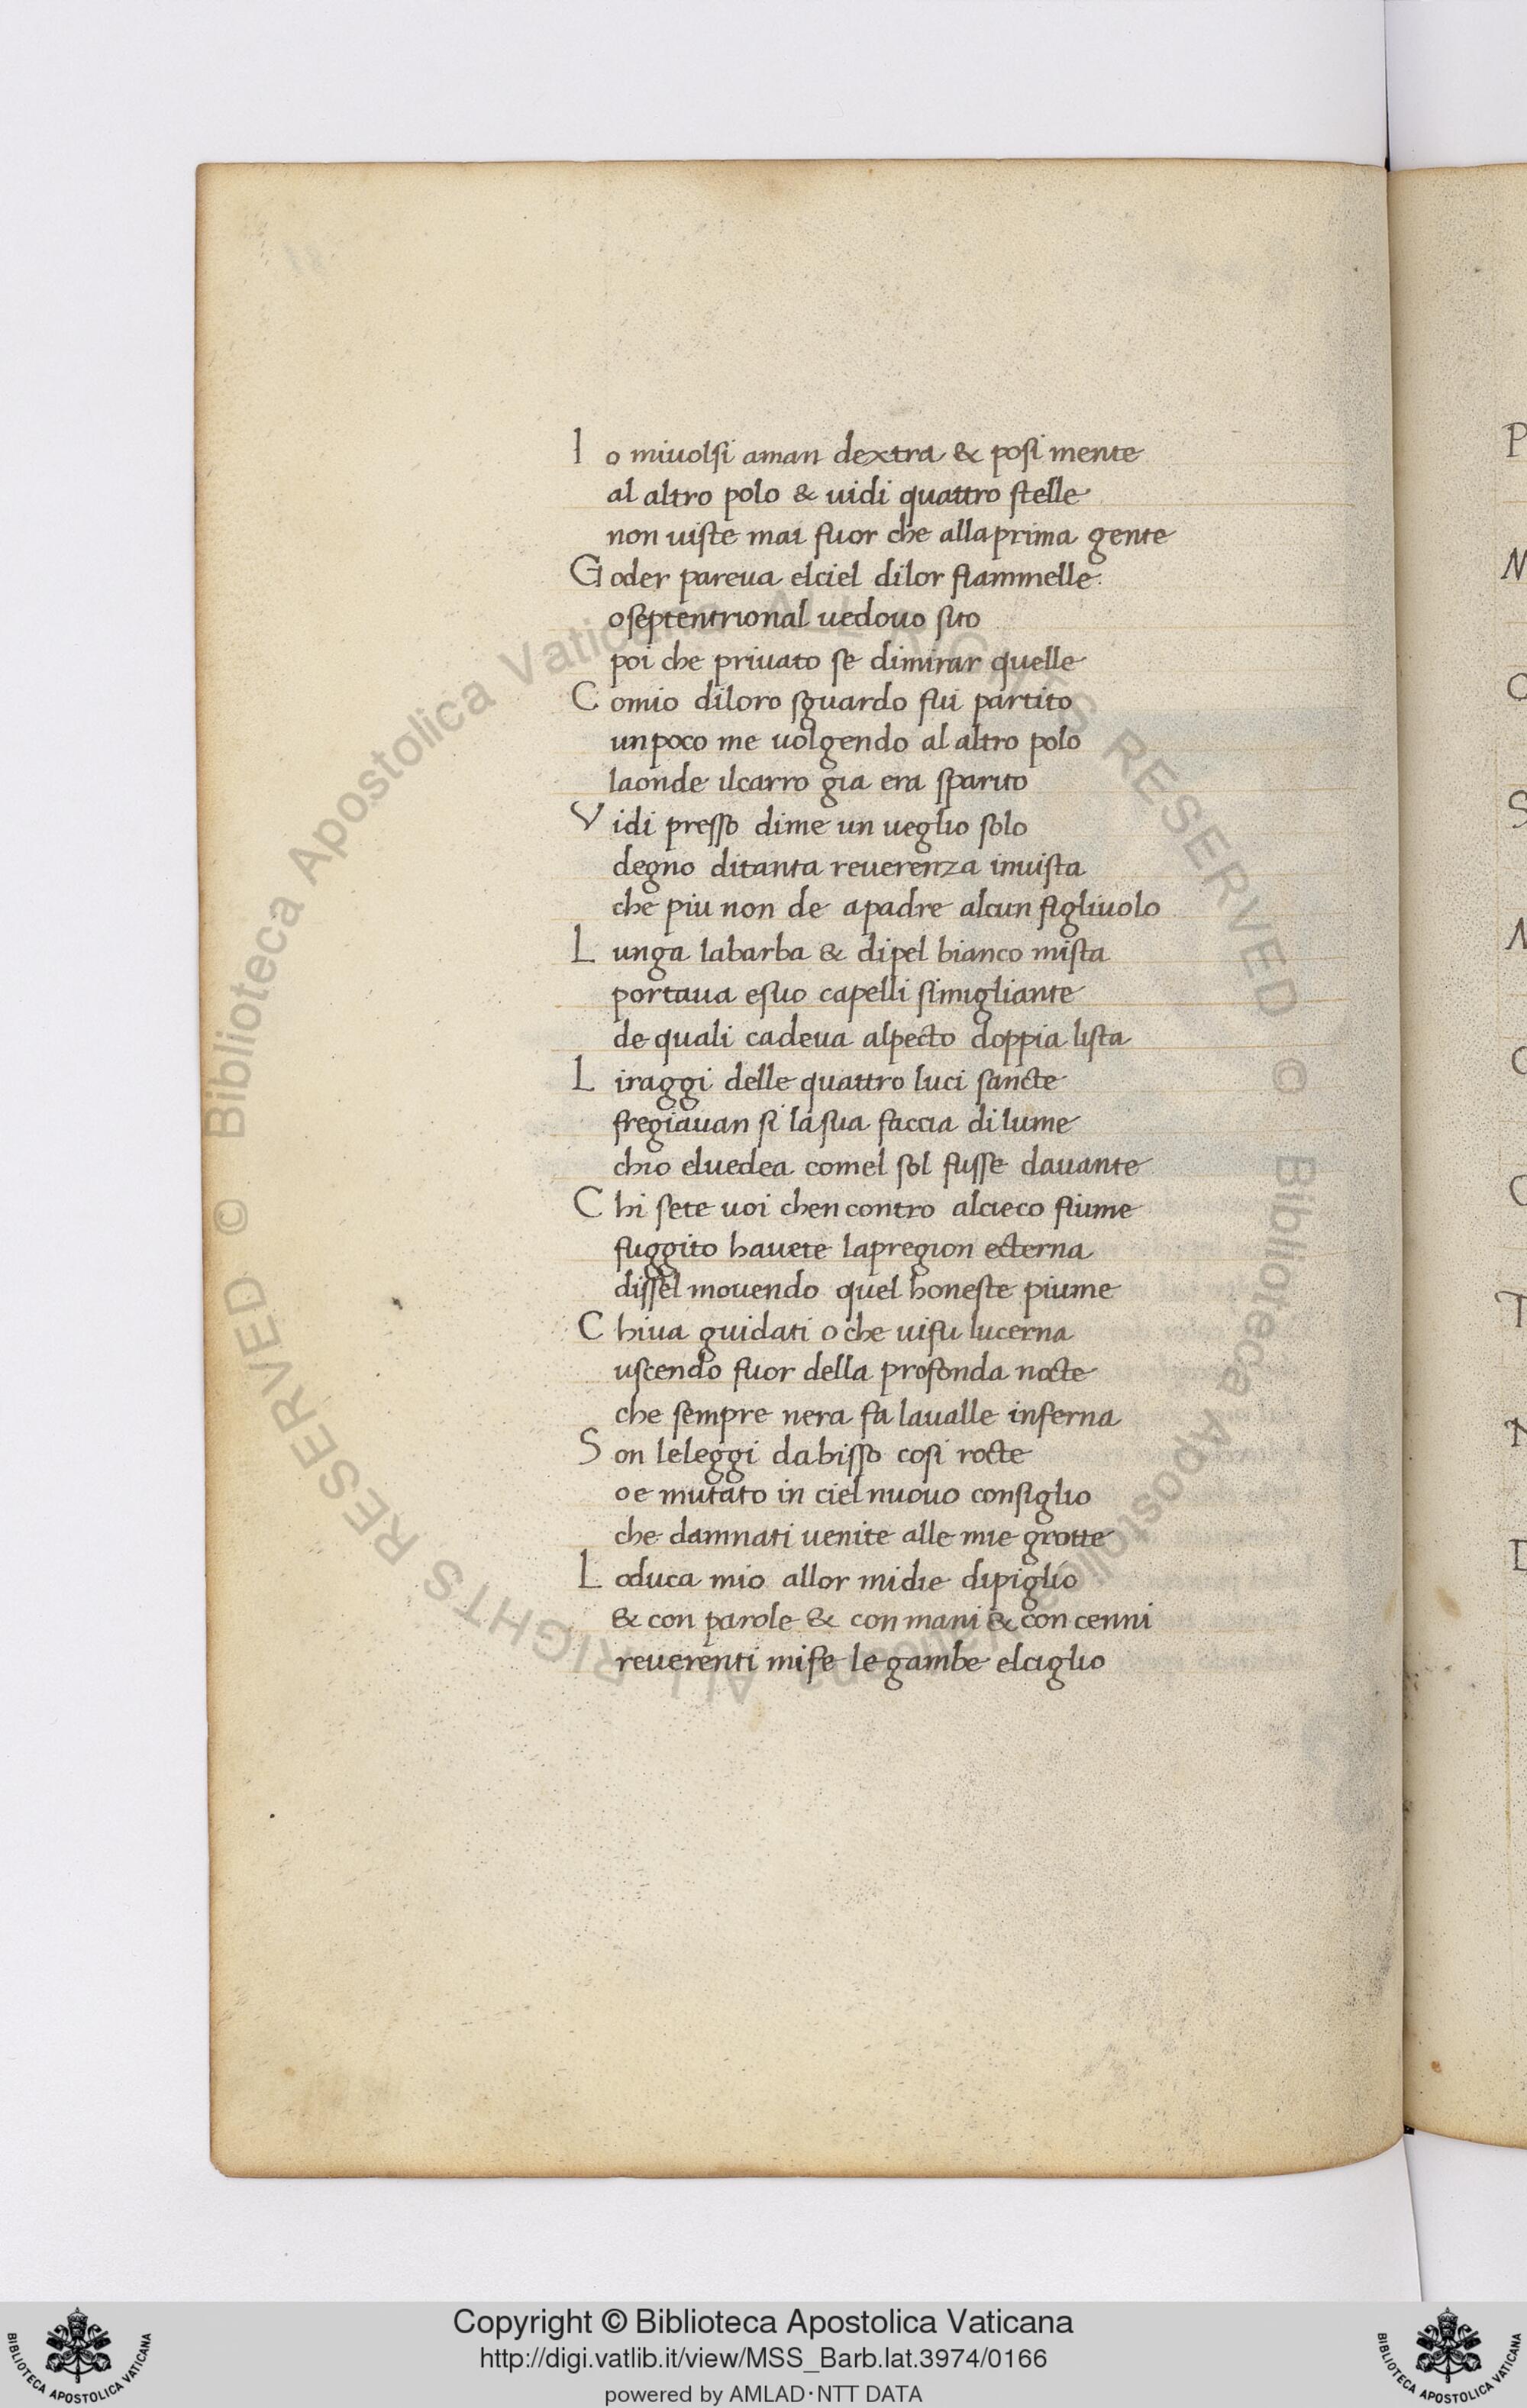 Io mivolsi aman dextra & posi mente
al altro polo & vidi quattro stelle
non viste mai fuor che allaprima gente
Goder pareva elciel dilor fiammelle
oseptentrional vedovo sito
poi che privato se dimirar quelle
Comio diloro sguardo fui partito
unpoco me volgendo al altro polo
laonde ilcarro gia era sparito
Vidi presso dime un veglio solo
degno ditanta reverenza invista
che piu non de apadre alcun figlivolo
Lunga labarba & dipel bianco mista
portava esuo capelli simigliante
de quali cadeva alpecto doppia lista
Liraggi delle quattro luci sancte
fregiavan si lasua faccia di lume
chio elvedea comel sol fusse davante
Chi sete voi chencontro alcieco fiume
fuggito havete lapregion ecterna
dissel movendo quel honeste piume
Chiva guidati o che vifu lucerna
uscendo fuor della profonda nocte
che sempre nera fa lavalle inferna
Son leleggi dabisso cosi rocte
oe mutato in ciel nuovo consiglio
che damnati venite alle mie grotte
Loduca mio allor midie dipiglio
& con parole & con mani & con cenni
reverenti mise le gambe elciglio
P
N
C
S
N
C
C
T
N
D
© Biblioteca Apostolica Vaticana ALL RIGHTS RESERVED © Biblioteca Apostolica Vaticana ALL RIGHTS RESERVED
Copyright © Biblioteca Apostolica Vaticana
http://digi.vatlib.it/view/MSS_Barb.lat.3974/0166
powered by AMLAD·NTT DATA
BIBLIOTECA APOSTOLICA VATICANA
BIBLIOTECA APOSTOLICA VATICANA